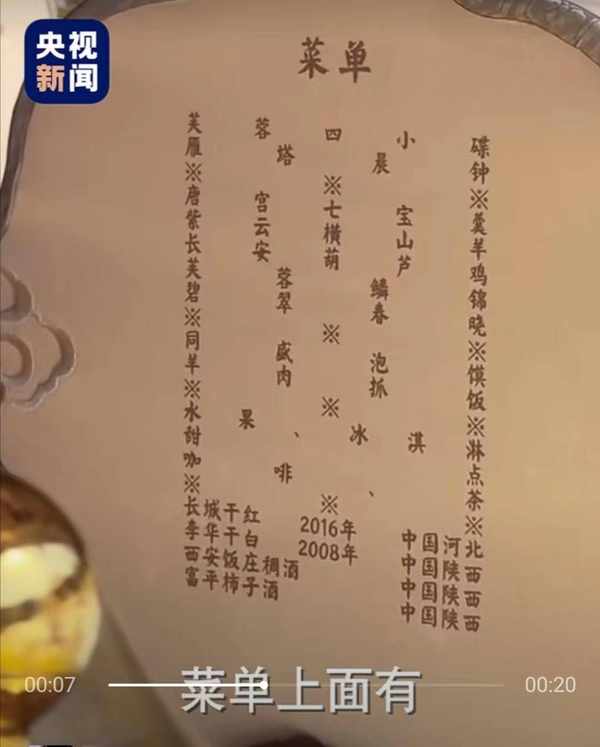 央视
新闻
菜单
芙蓉四小碟
雁塔晨钟
※ ※ ※
唐宫七宝羹
紫云横山羊
长安葫芦鸡
芙蓉鳞锦
碧翠春晓
※ ※ ※
同盛泡馍
羊肉抓饭
※ ※ ※
水果、冰淇淋
甜点
咖啡、茶
※ ※ ※
长城干红 2016年 中国河北
李华干白 2008年 中国陕西
西安饭庄稠酒 中国陕西
富平柿子酒 中国陕西
00:07 00:20
菜单上面有